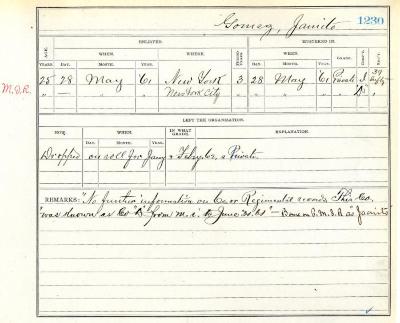 Gomez, Janito 1230
ENLISTED. MUSTERED IN.
AGE. WHEN. WHERE. PERIOD WHEN. GRADE. CO. REG'T.
YEARS. DAY. MONTH. YEAR. YEARS. DAY. MONTH. YEAR.
M.I.R. 25 28 May 61 New York 3 28 May 61 Private I 39
" — " " New York City " " " " "
LEFT THE ORGANIZATION.
HOW. WHEN. IN WHAT GRADE. EXPLANATION.
DAY. MONTH. YEAR.
Dropped on roll for Jany & Feby 62, a Private.
REMARKS: "No further information on Co. or Regimental records This Co.
"was known as Co "D" from m. i. to June 30. 61" — Borne on P.M.I.R as "Jacinto"